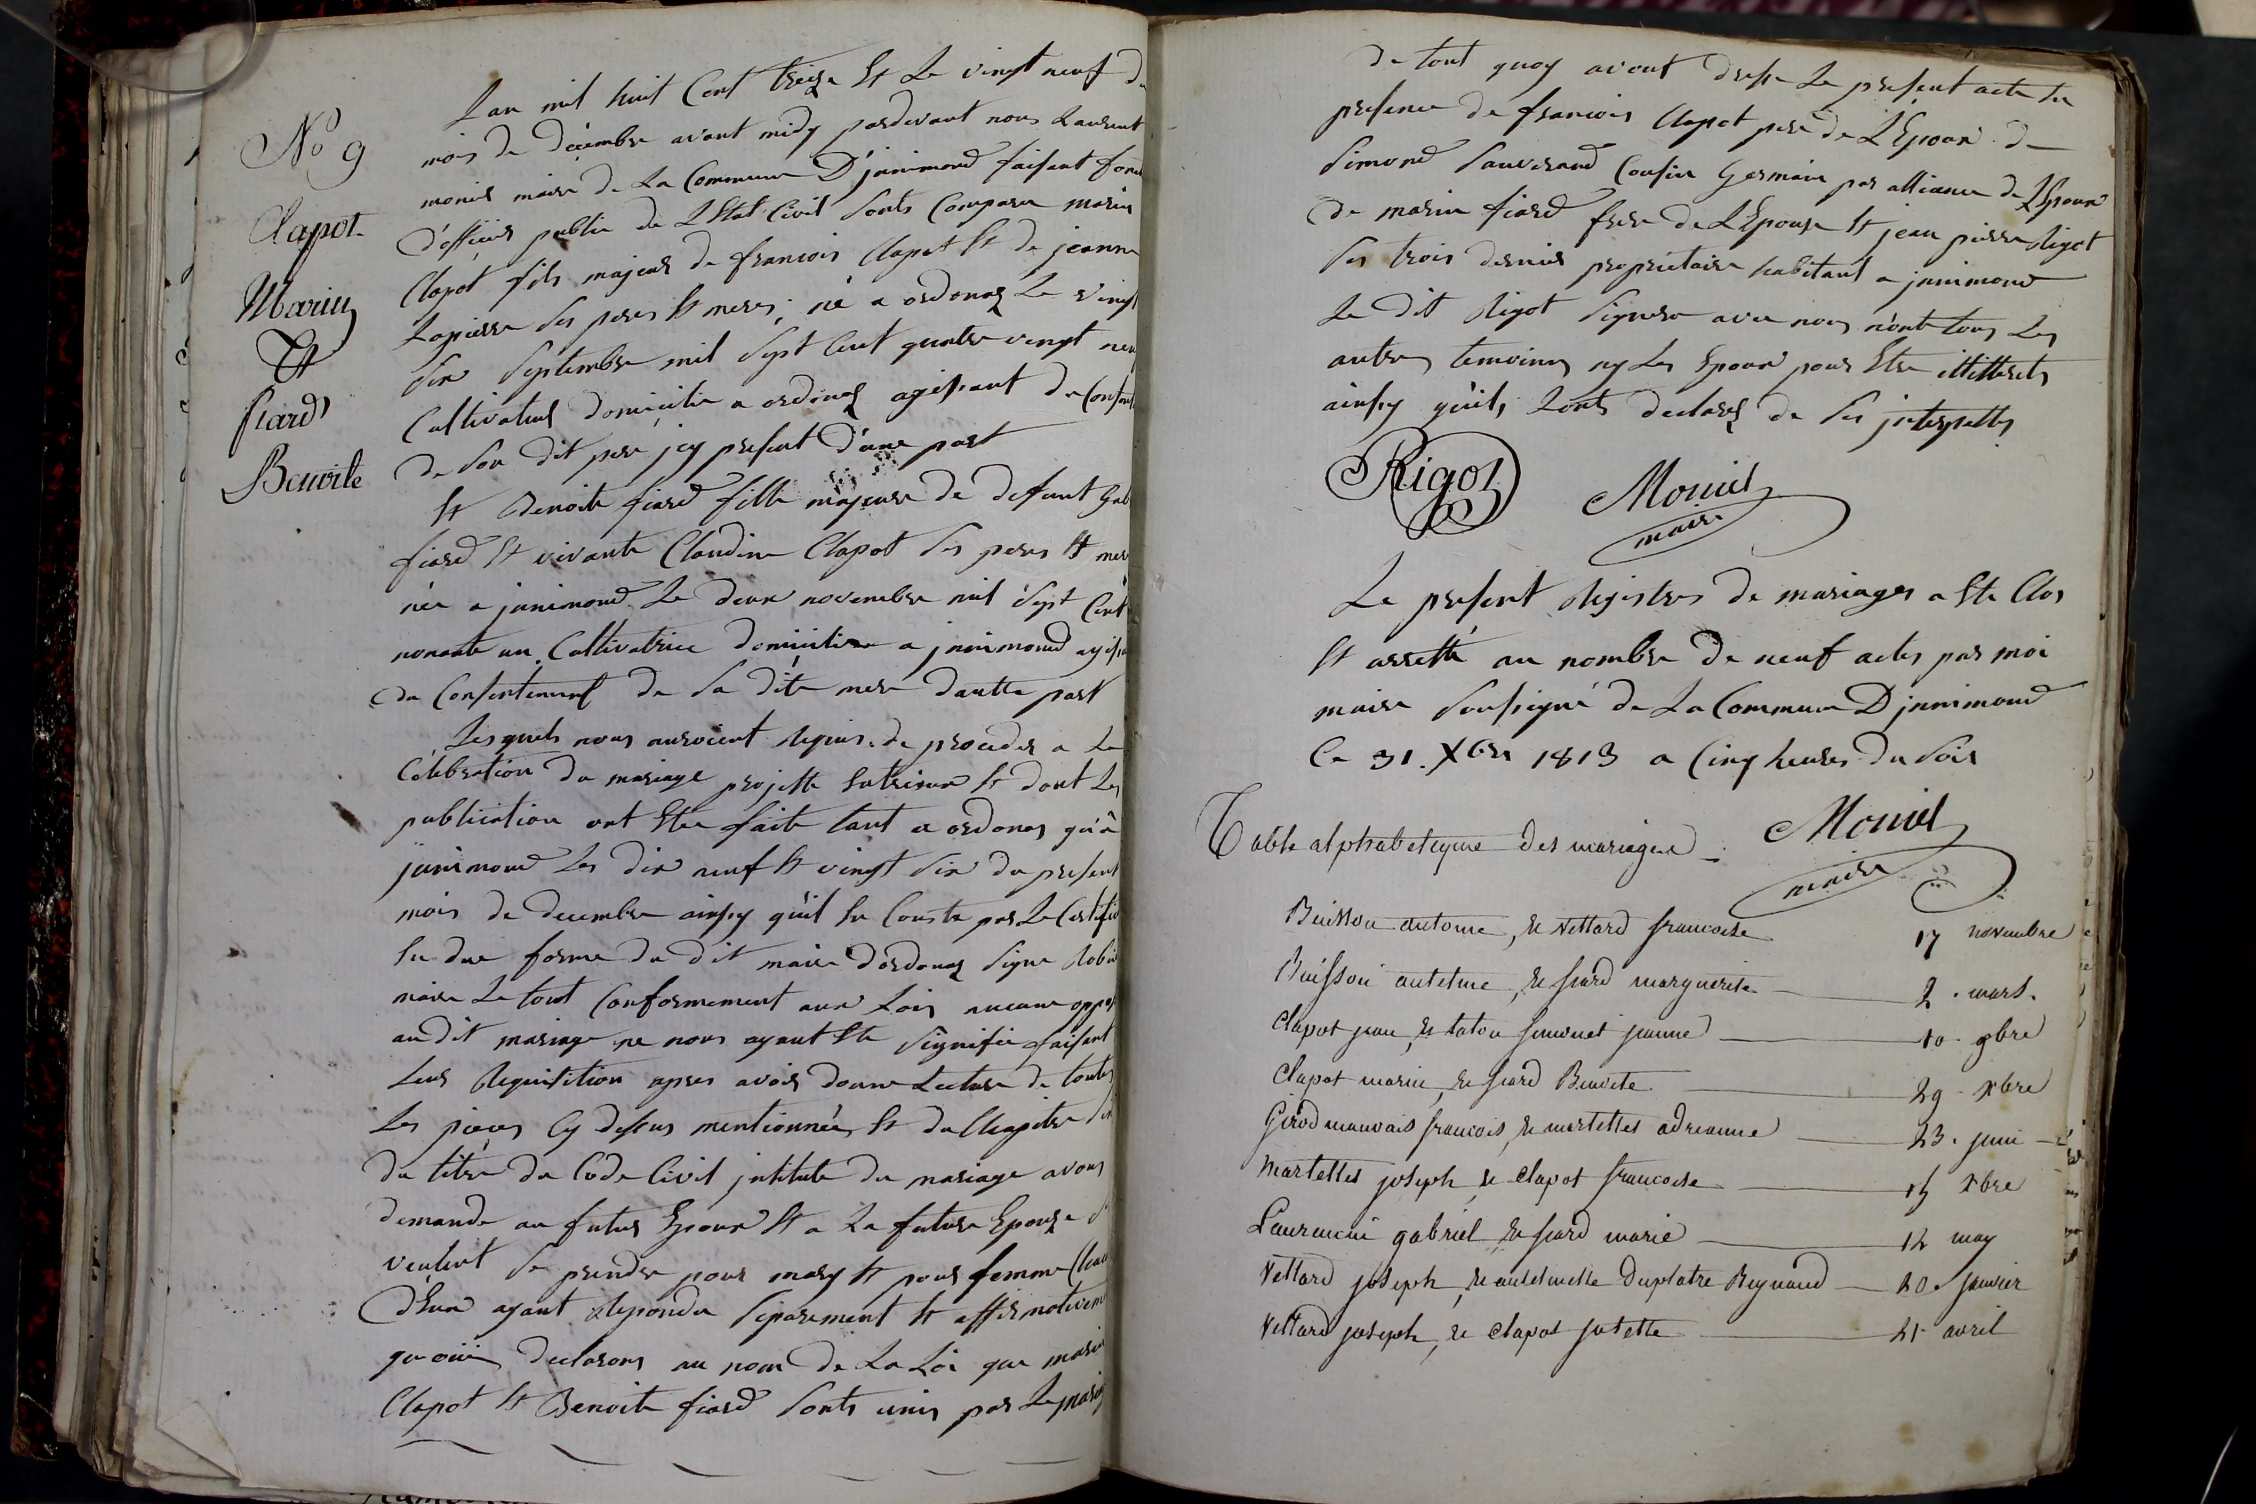 No 9
Clapot
Marin
Et
fiard
Benoite
Lan mil huit Cent treize Et Le vingt neuf d
mois de decembre avant midy pardevant nous Laurent
moniet maire de La Commune D'jnnimond faisant fon
d'officier public de L'Etat Civil Sonts Comparu marin
Clapot fils majeur de francois Clapot Et de jeanne
Lapierre Ses peres Et meres, né a ordonaz Le vingt
Six Septembre mil Sept Cent quatre vingt neu
Cultivateur domicilie a ordonaz agissant du Consent
de Son dit pere jcy present d'une part
Et Benoite fiard fille majeure de defunt Gab
fiard Et vivante Claudine Clapot Ses peres Et mere
née a jnnimond Le deux novembre mil Sept Cent
nonante un Cultivatrice domiciliee a jnnimond agissa
du Consentement de Sa dite mere dautre part
Lesquels nous auroient requis de proceder a La
Celebration du mariage projette Entreeux Et dont Les
publication ont Ete faite tant a ordonas qu'a
jnnimond Les dix neuf Et vingt Six du present
mois de decembre ainsy quil En Conste par Le Certific
En due forme du dit maire d'ordonaz Signe Robin
maire Le tout Conformement aux Lois aucune oppos
au dit mariage ne nous ayant Ete Signifie faisant
Leur Requisition apres avoir donne Lecture de toutes
Les pieces Cy dessus mentionnées Et du Chapitre Six
du titre du Code Civil jntitule du mariage avons
demande au futur Epoux Et a La future Epouze S
veulent Se prendre pour mary Et pour femme Chacu
d'Eux ayant Repondu Separement Et affirmativeme
que oüi declarons au nom de La Loi que marin
Clapot Et Benoite fiard Sonts unis par Le mariag
de tout quoy avont dresse Le present acte En
presence de francois Clapot pere de L'Epoux de
Simond Sauverand Cousin Germain par alliance de L'Epoux
de marin fiard frere de L'Epouse Et jean pierre Rigot
Ses trois dernier proprietaire habitant a jnnimond
Le dit Rigot Signera avec nous nonts tous Les
autres temoins ny Les Epoux pour Etre illitterets
ainsy quils Lonts declarez de Ses jnterpelles
Rigot
Moniet
maire
Le present Registres de mariages a Ete Clos
Et arretté au nombre de neuf actes par moi
maire Soussigné de La Commune D jnnimond
Ce 31. Xbre 1813 a Cinq heures du Soir
Moniet
maire
Table alphabetique des mariages
Buisson antoine, et Vettard francoise 17 novembre
Buisson antelme, et fiard marguerite 2. mars.
Clapot jean, et taton simonet jeanne 10. 9bre
Clapot marin, et fiard Benoite 29 Xbre
Girod mauvais francois, et martellet adrianne 23. juin
Martellet joseph et Clapot francoise 15 Xbre
Laurencin gabriel et fiard marie 12 may
Vettard joseph, et antelmette Duplatre Reynaud 20. janvier
Vettard joseph, et Clapot jutette 21 avril